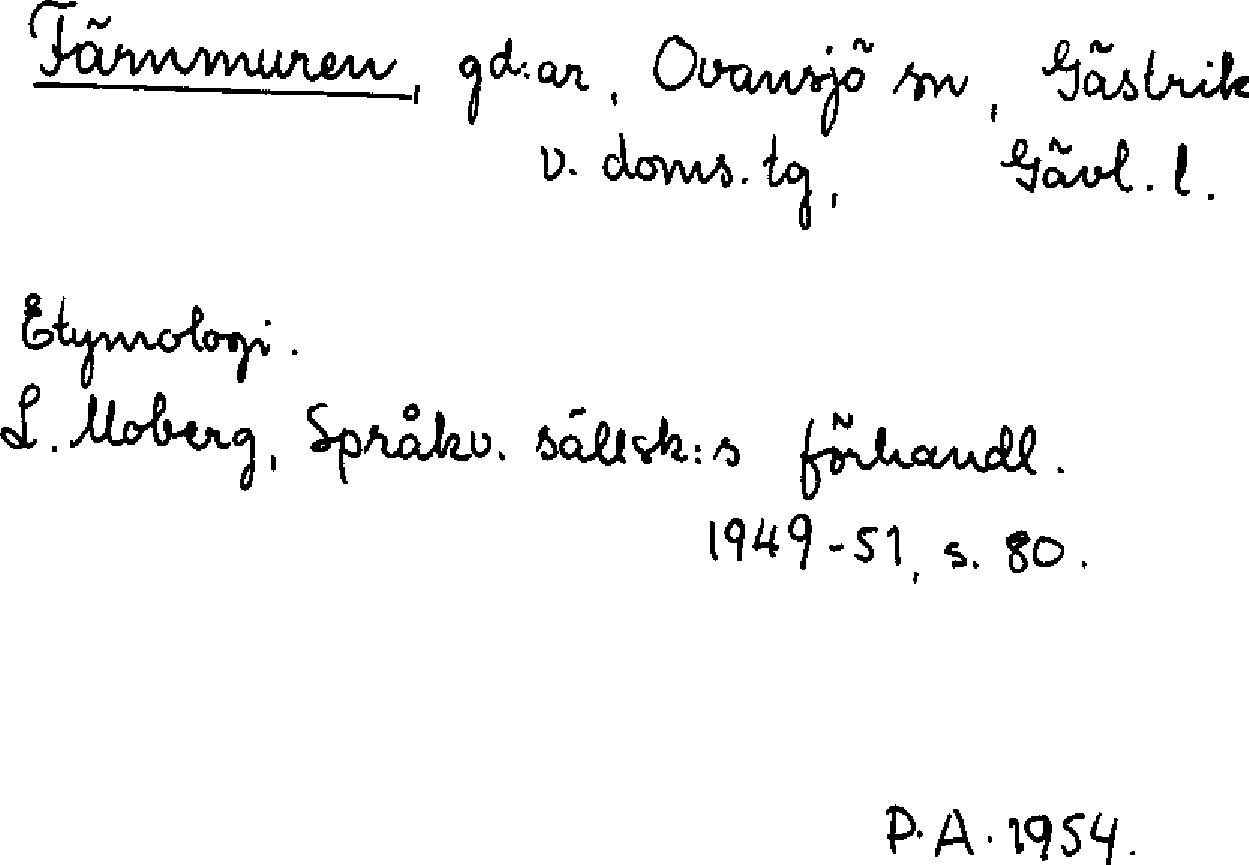 Färnmuren, gd:ar, Ovansjö sn, Gästrik
v. doms. tg, Gävl. l.
Etymologi.
L. Moberg, Språkv. sällsk:s förhandl.
1949-51, s. 80.
P.A. 1954.